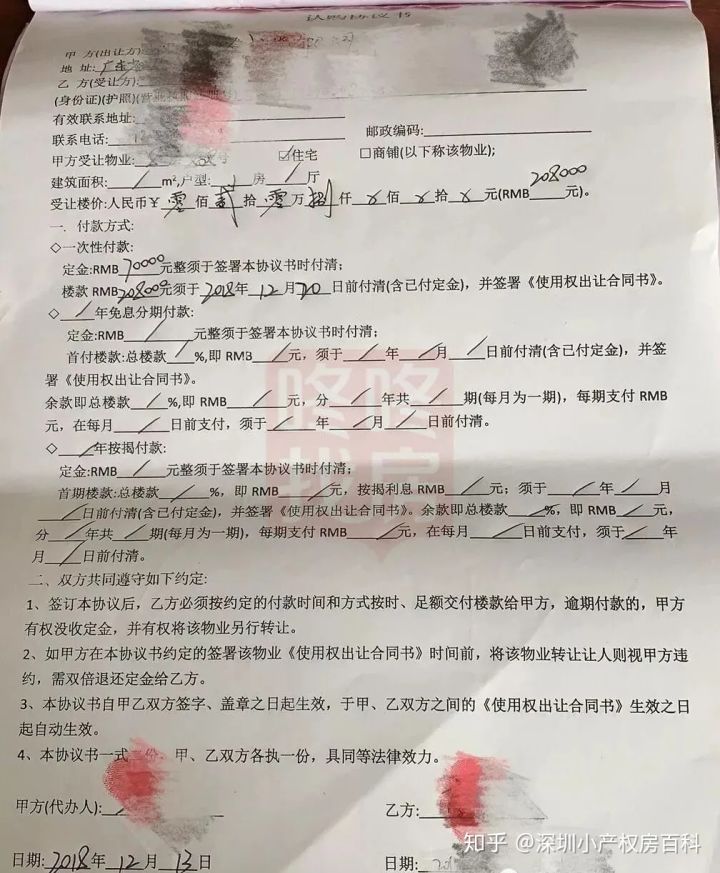 认购协议书
甲方(出让方)
地 址:广东省
乙 方(受让方):
(身份证)(护照)
有效联系地址:
联系电话: 邮政编码:
甲方受让物业: ☑住宅 □商铺(以下称该物业);
建筑面积: / m²,户型: 1 房 / 厅
受让楼价:人民币￥ 零 佰 贰 拾 零 万 捌 仟 x 佰 x 拾 x 元(RMB 208000 元)。
一. 付款方式:
◇一次性付款:
定金:RMB 70000 元整须于签署本协议书时付清;
楼款 RMB 208000 元须于 2018 年 12 月 20 日前付清(含已付定金)，并签署《使用权出让合同书》。
◇ / 年免息分期付款:
定金:RMB / 元整须于签署本协议书时付清;
首付楼款:总楼款 / %,即 RMB / 元，须于 / 年 / 月 / 日前付清(含已付定金)，并签
署《使用权出让合同书》。
余款即总楼款 / %,即 RMB / 元，分 / 年共 / 期(每月为一期)，每期支付 RMB /
元，在每月 / 日前支付，须于 / 年 / 月 / 日前付清。
◇ / 年按揭付款:
定金:RMB / 元整须于签署本协议书时付清;
首期楼款:总楼款 / %，即 RMB / 元，按揭利息 RMB / 元；须于 / 年 / 月
/ 日前付清(含已付定金)，并签署《使用权出让合同书》。余款即总楼款 / %，即 RMB / 元，
分 / 年共 / 期(每月为一期)，每期支付 RMB / 元，在每月 / 日前支付，须于 / 年
月 / 日前付清。
二、双方共同遵守如下约定:
1、签订本协议后，乙方必须按约定的付款时间和方式按时、足额交付楼款给甲方，逾期付款的，甲方
有权没收定金，并有权将该物业另行转让。
2、如甲方在本协议书约定的签署该物业《使用权出让合同书》时间前，将该物业转让让人则视甲方违
约，需双倍退还定金给乙方。
3、本协议书自甲乙双方签字、盖章之日起生效，于甲、乙双方之间的《使用权出让合同书》生效之日
起自动生效。
4、本协议书一式二份，甲、乙双方各执一份，具同等法律效力。
甲方(代办人): 乙方:
日期: 2018 年 12 月 13 日 日期: 20
咚咚
找房
知乎 @深圳小产权房百科